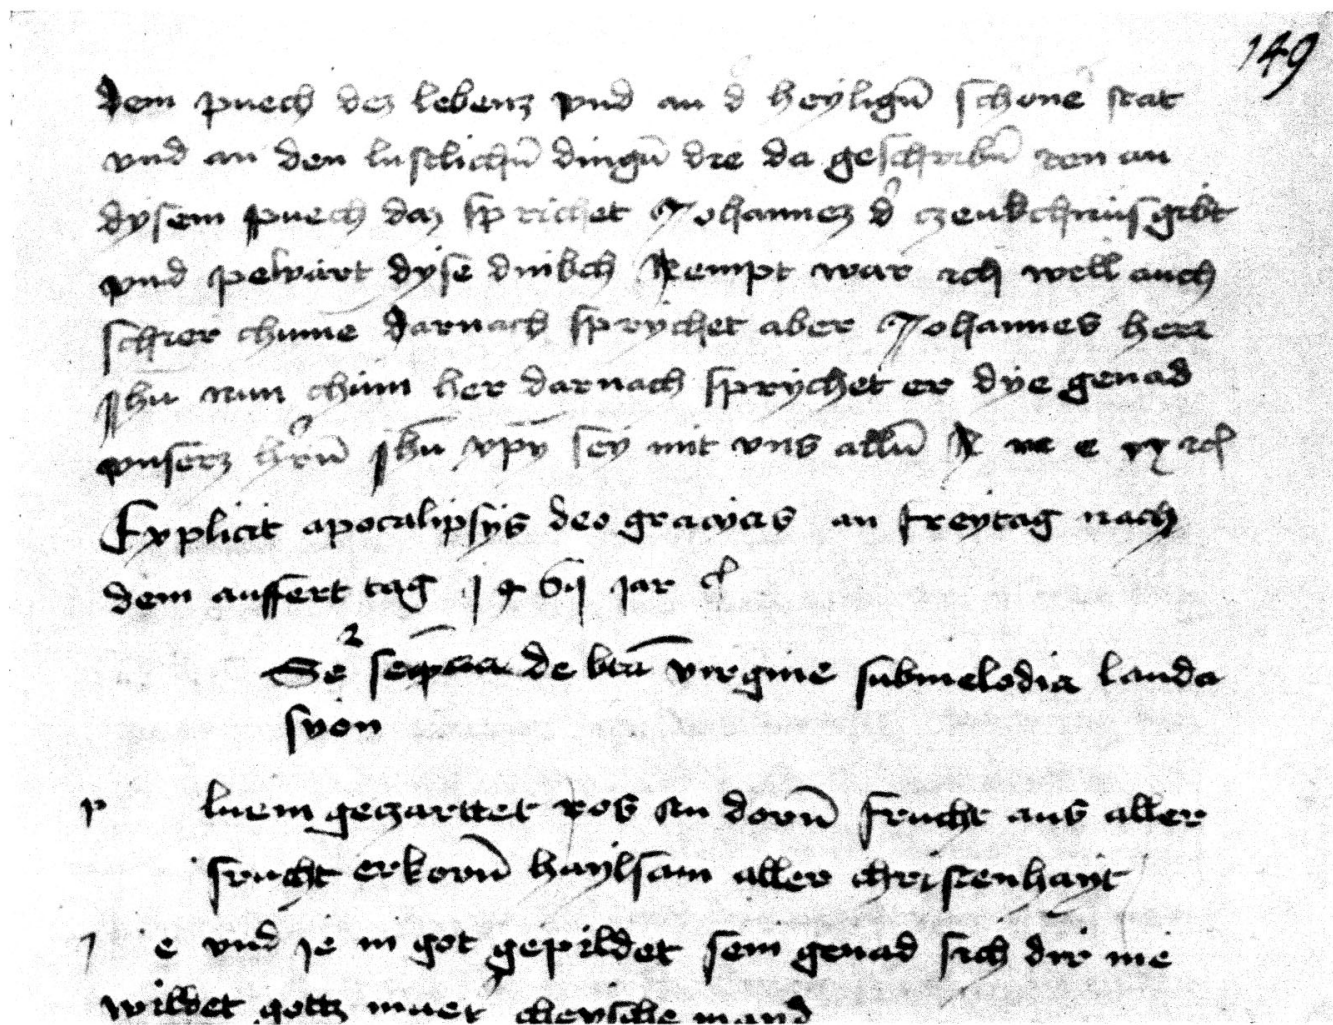 149
dem puech dez lebenz vnd an d' heylign̄ schone' stat
vnd an den lustlichn̄ dingn̄ die da geschribn̄ sten an
dysem puech daz sprichet Johannez d' czeukchnus gibt
vnd pewart dyse dinkch Nempt war ich well auch
schier chume darnach sprychet aber Johannes herr
jhū nun chum her darnach sprychet er dye genad
vnserz h'rn̄ jhū xpī sey mit vns alln̄ A m e n
Explicit apocalipsys deo gracias an freytag nach
dem auffert tag jar
Se' de btā virgine sub melodia lauda
syon
p luem geczarttet ros an dorn̄ frucht aus aller
frucht erkorn̄ haylsam aller christenhayt
J e vnd je in got gepildet sein genad sich dir nie
wildet gottz muet chewsche mayd